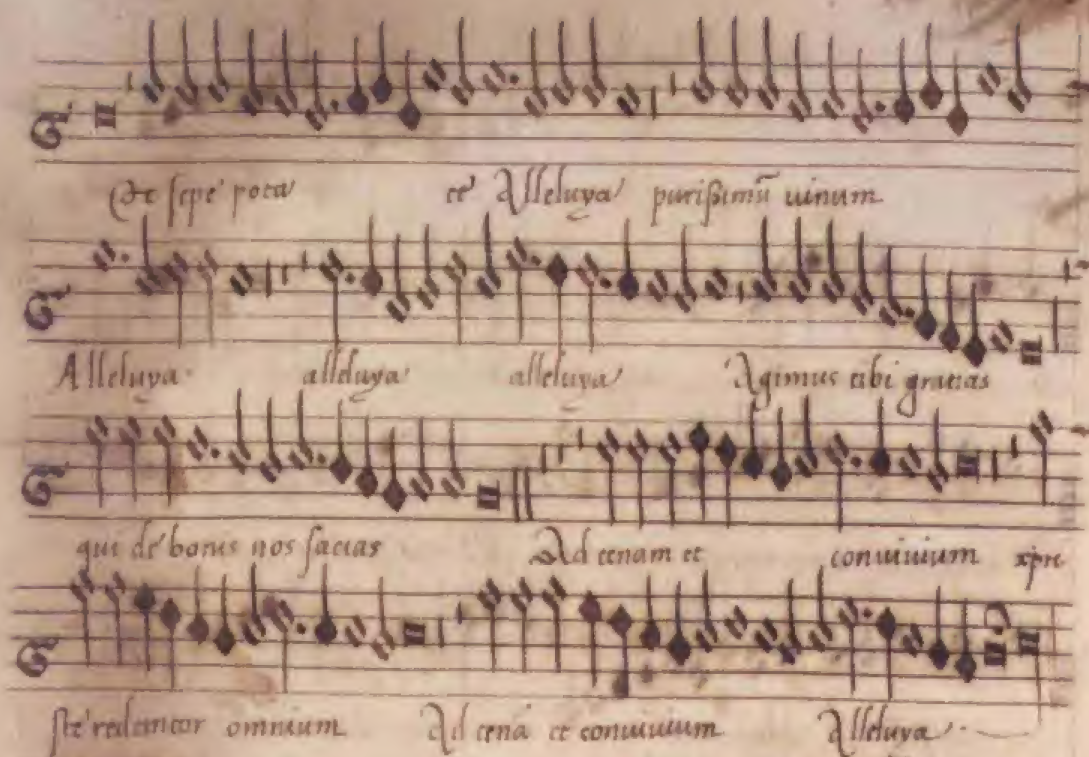 Et sepe pota te Alleluya purißimū uinum
Alleluya alleluya alleluya Agimus tibi gratias
qui de bonis nos sacias Ad cenam et conuiuium xp̄e
redemtor omnium Ad cenā et conuiuium Alleluya